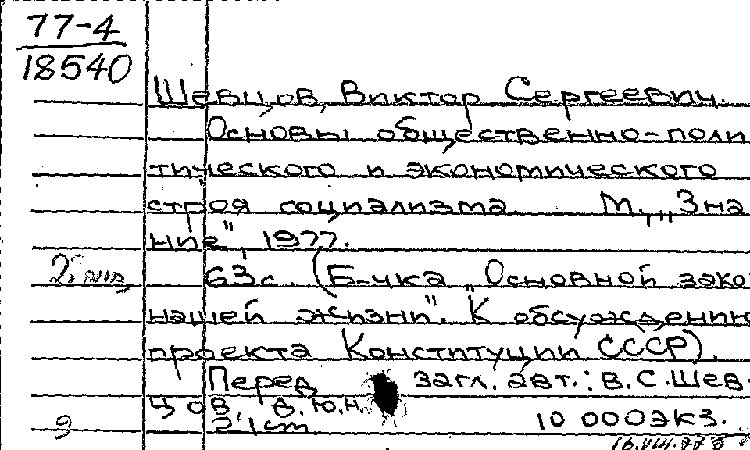 77-4
18540
Шевцов, Виктор Сергеевич.
Основы общественно-поли
тического и экономического
строя социализма М., „Зна
ние", 1977.
63с. (Б-чка „Основной зако
нашей жизни". К обсуждению
проекта Конституции СССР).
Перед загл. авт.: В.С.Шев-
цов, в.ю.н.
10 000экз.
9